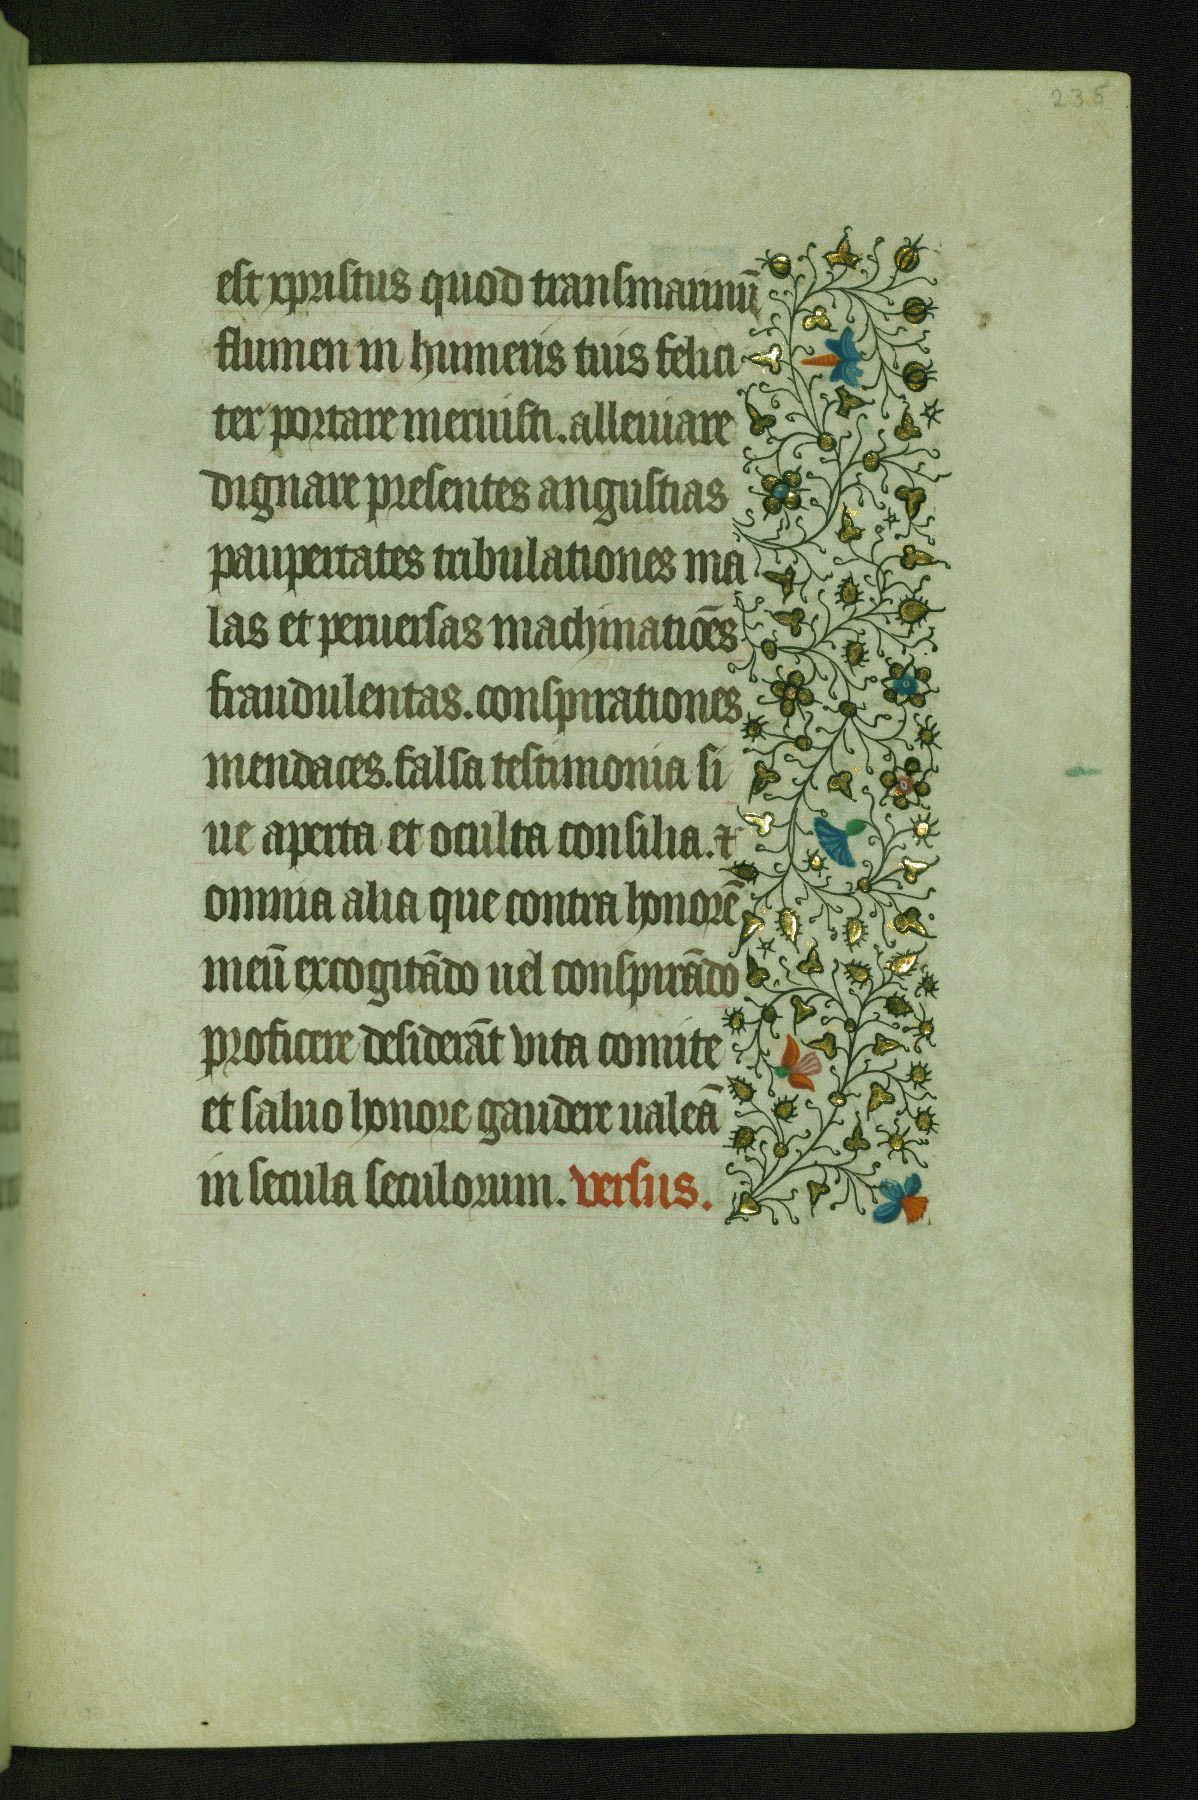 235
est xpristus quod transmarinū
flumen in humeris tuis felici
ter portare meruisti. alleuiare
dignare presentes angustias
paupertates tribulationes ma
las et peruersas machinatiōes
fraudulentas. conspirationes
mendaces. falsa testimonia si
ue aperta et oculta consilia. ⁊
omnia alia que contra honorē
meū excogitādo uel conspirādo
proficere desiderāt vita comite
et saluo honore gaudere ualeā
in secula seculorum. versus.